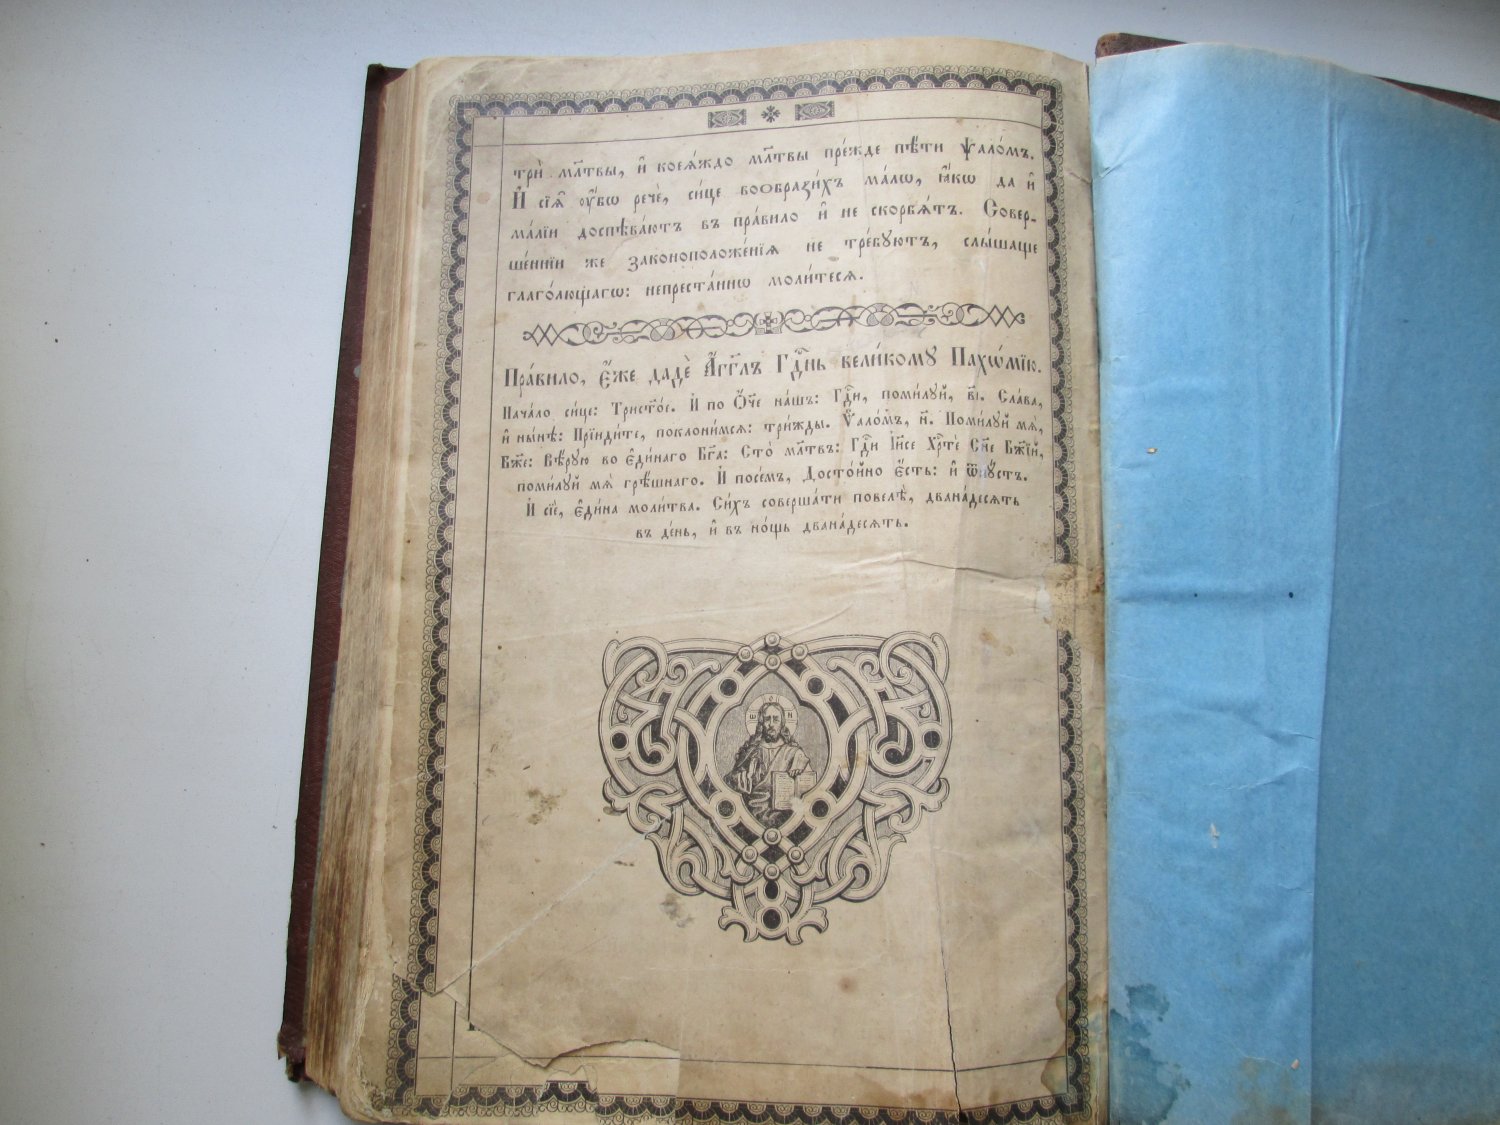 трѝ мл҃твы, и҆ коеѧ́ждо мл҃твы пре́жде пѣ́ти ѱало́мъ.
И҆ сїѧ̑ ᲂу҆́бѡ речѐ, си́це воѡбрази́хъ ма́лѡ, ꙗ҆́кѡ да и҆
ма́лїи доспѣва́ютъ въ пра́вило и҆ не скорбѧ́тъ. Совер-
ше́ннїи же законоположе́нїѧ не тре́бꙋютъ, слы́шаще
глаго́лющагѡ: непреста́ннѡ моли́тесѧ.
Пра́вило, є҆́же дадѐ А҆́гг҃лъ Гдⷭ҇нь вели́комꙋ Пахѡ́мїю.
Нача́ло си́це: Трист҃о́е. И҆ по Ѻ҆́ч҃е на́шъ: Гдⷭ҇и, поми́лꙋй, в҃і. Сла́ва,
и҆ ны́нѣ: Прїиди́те, поклони́мсѧ: три́жды. Ѱало́мъ, н҃. Поми́лꙋй мѧ̀,
Бж҃е: Вѣ́рꙋю во є҆ди́наго Бг҃а: Сто̀ мл҃твъ: Гдⷭ҇и І҆и҃се Хрⷭ҇тѐ Сн҃е Бж҃їй,
поми́лꙋй мѧ̀ грѣ́шнаго. И҆ посе́мъ, Досто́йно є҆́сть: и҆ ѿпꙋ́стъ.
И҆ сїѐ, є҆ди́на моли́тва. Си́хъ соверша́ти повелѣ̀, двана́десѧть
въ де́нь, и҆ въ но́щь двана́десѧть.